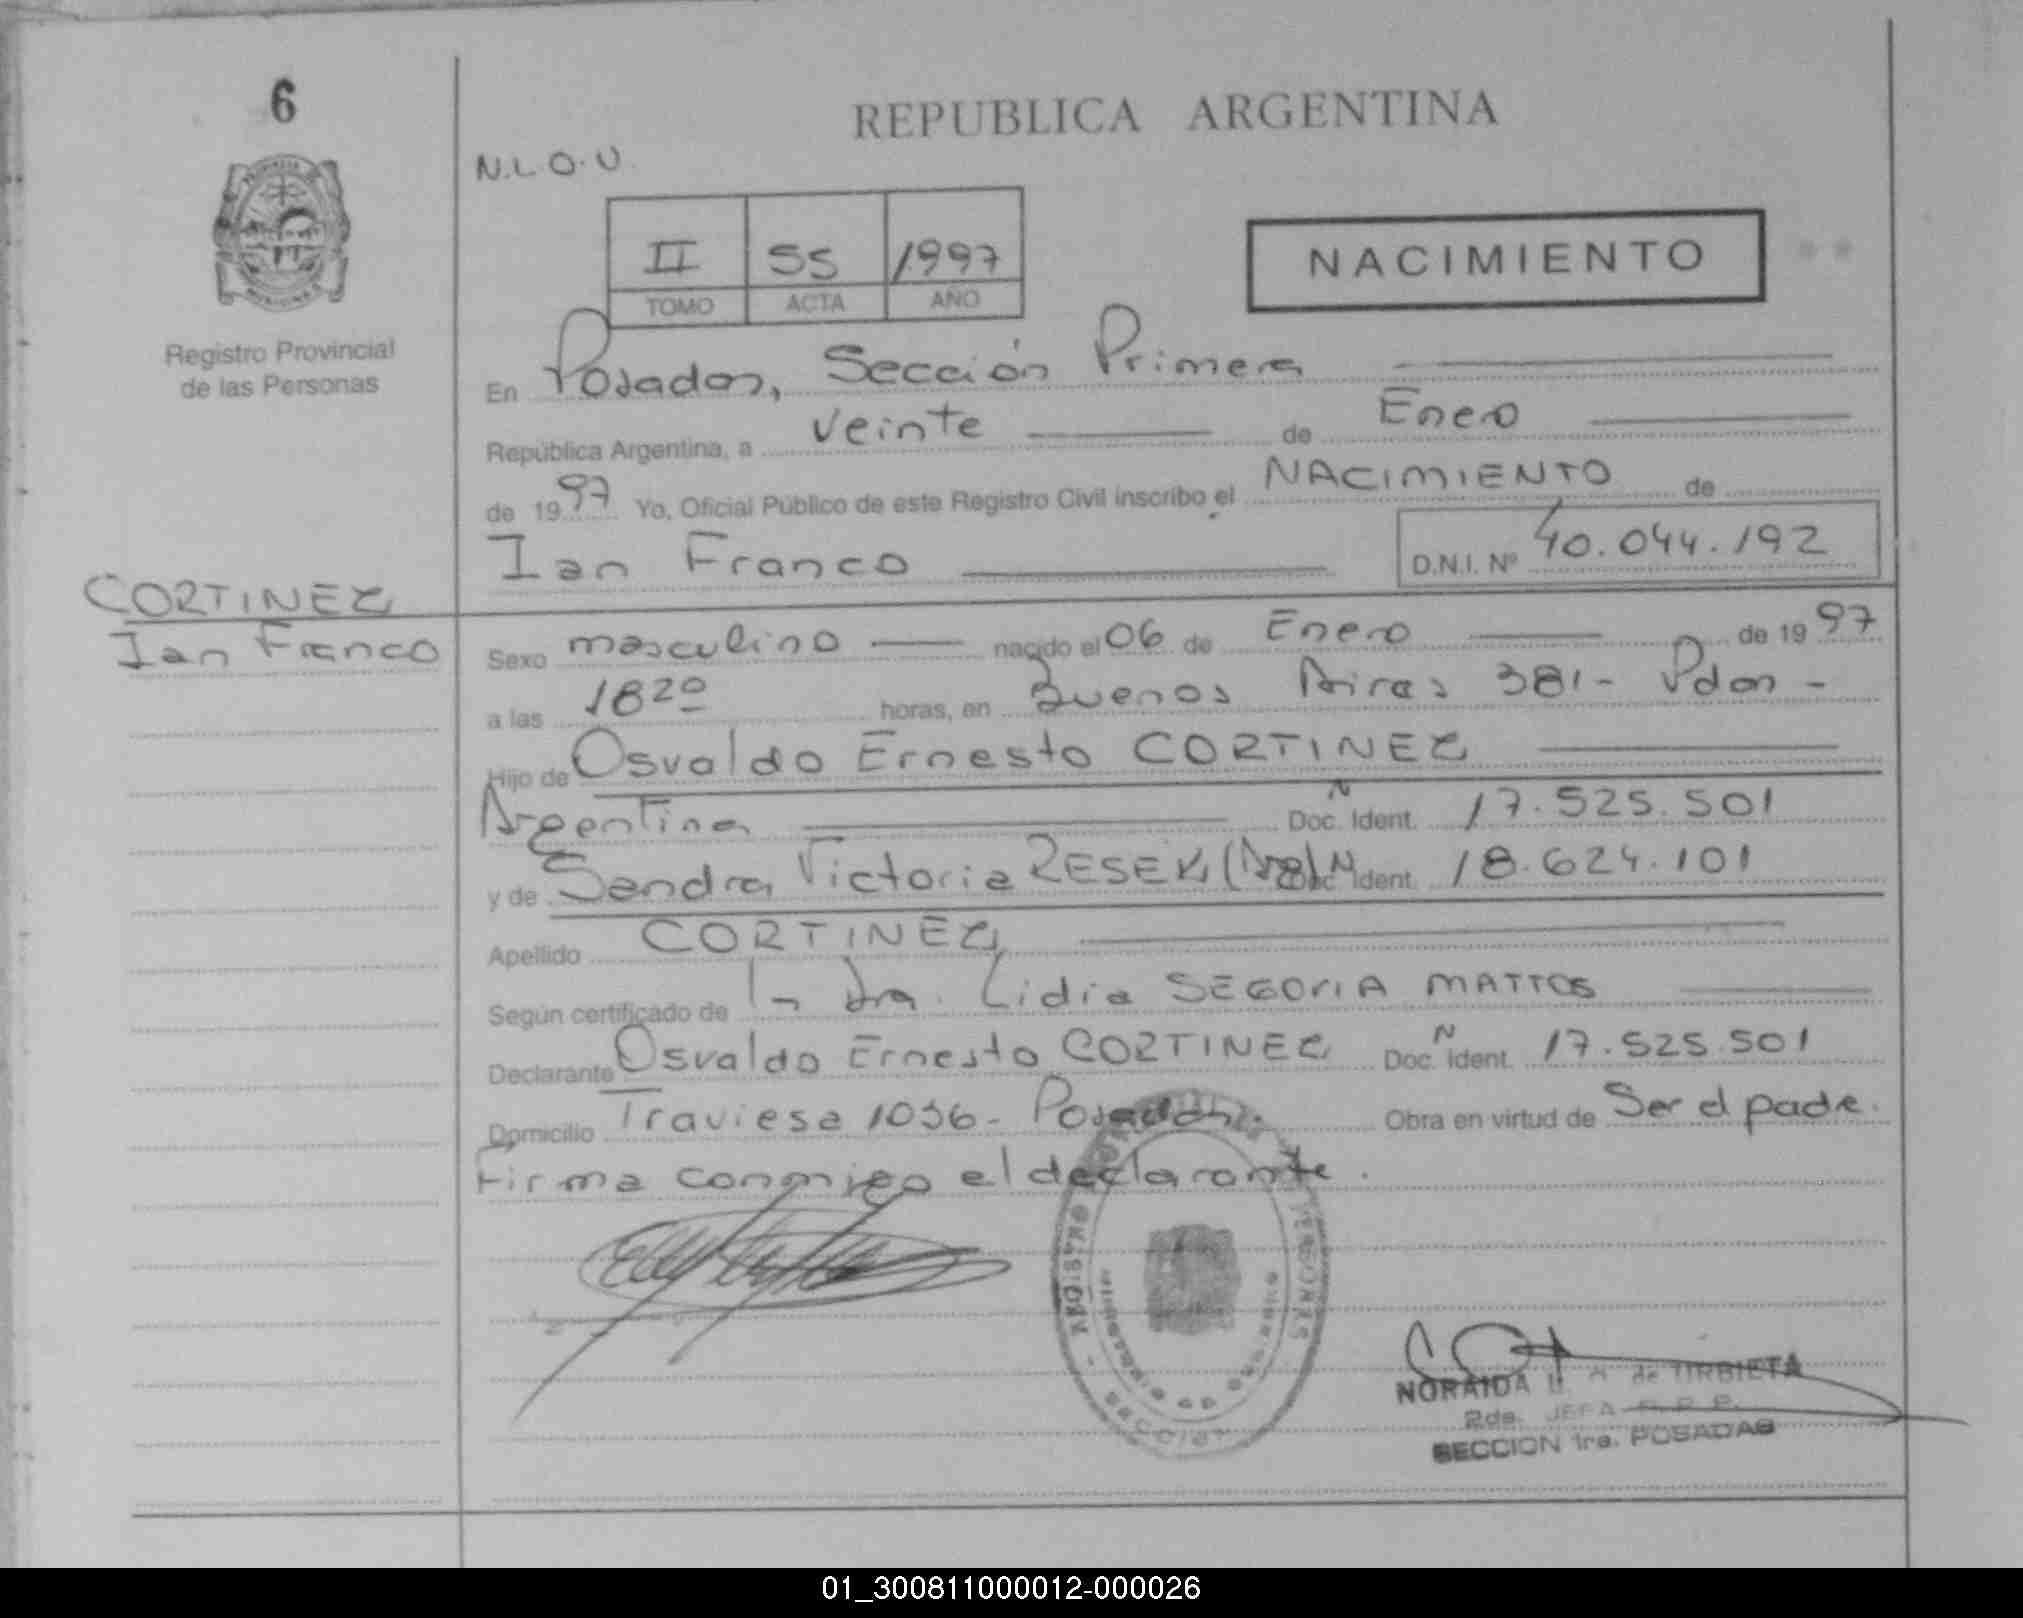 6
REPUBLICA ARGENTINA
N.L.O.U.
II 55 1997
TOMO ACTA AÑO
NACIMIENTO
Registro Provincial
de las Personas
En Posadas, Sección Primera
República Argentina, a veinte de Enero
de 1997 Yo, Oficial Público de este Registro Civil inscribo el NACIMIENTO de
Ian Franco D.N.I. Nº 40.044.192
CORTINEZ
Ian Franco
Sexo masculino nacido el 06 de Enero de 1997
a las 18 20 horas, en Buenos Aires 381- Pdas -
Hijo de Osvaldo Ernesto CORTINEZ
Argentina Doc. N Ident. 17.525.501
y de Sandra Victoria RESEK (Arg) Doc. N Ident. 18.624.101
Apellido CORTINEZ
Según certificado de la Dra. Lidia SEGOVIA MATTOS
Declarante Osvaldo Ernesto CORTINEZ Doc. N Ident. 17.525.501
Domicilio Traviesa 1056- Posadas. Obra en virtud de Ser el padre.
Firma conmigo el declarante.
NORAIDA de URBIETA
2da. JEFA R. P. P.
SECCION 1ra. POSADAS
01_300811000012-000026